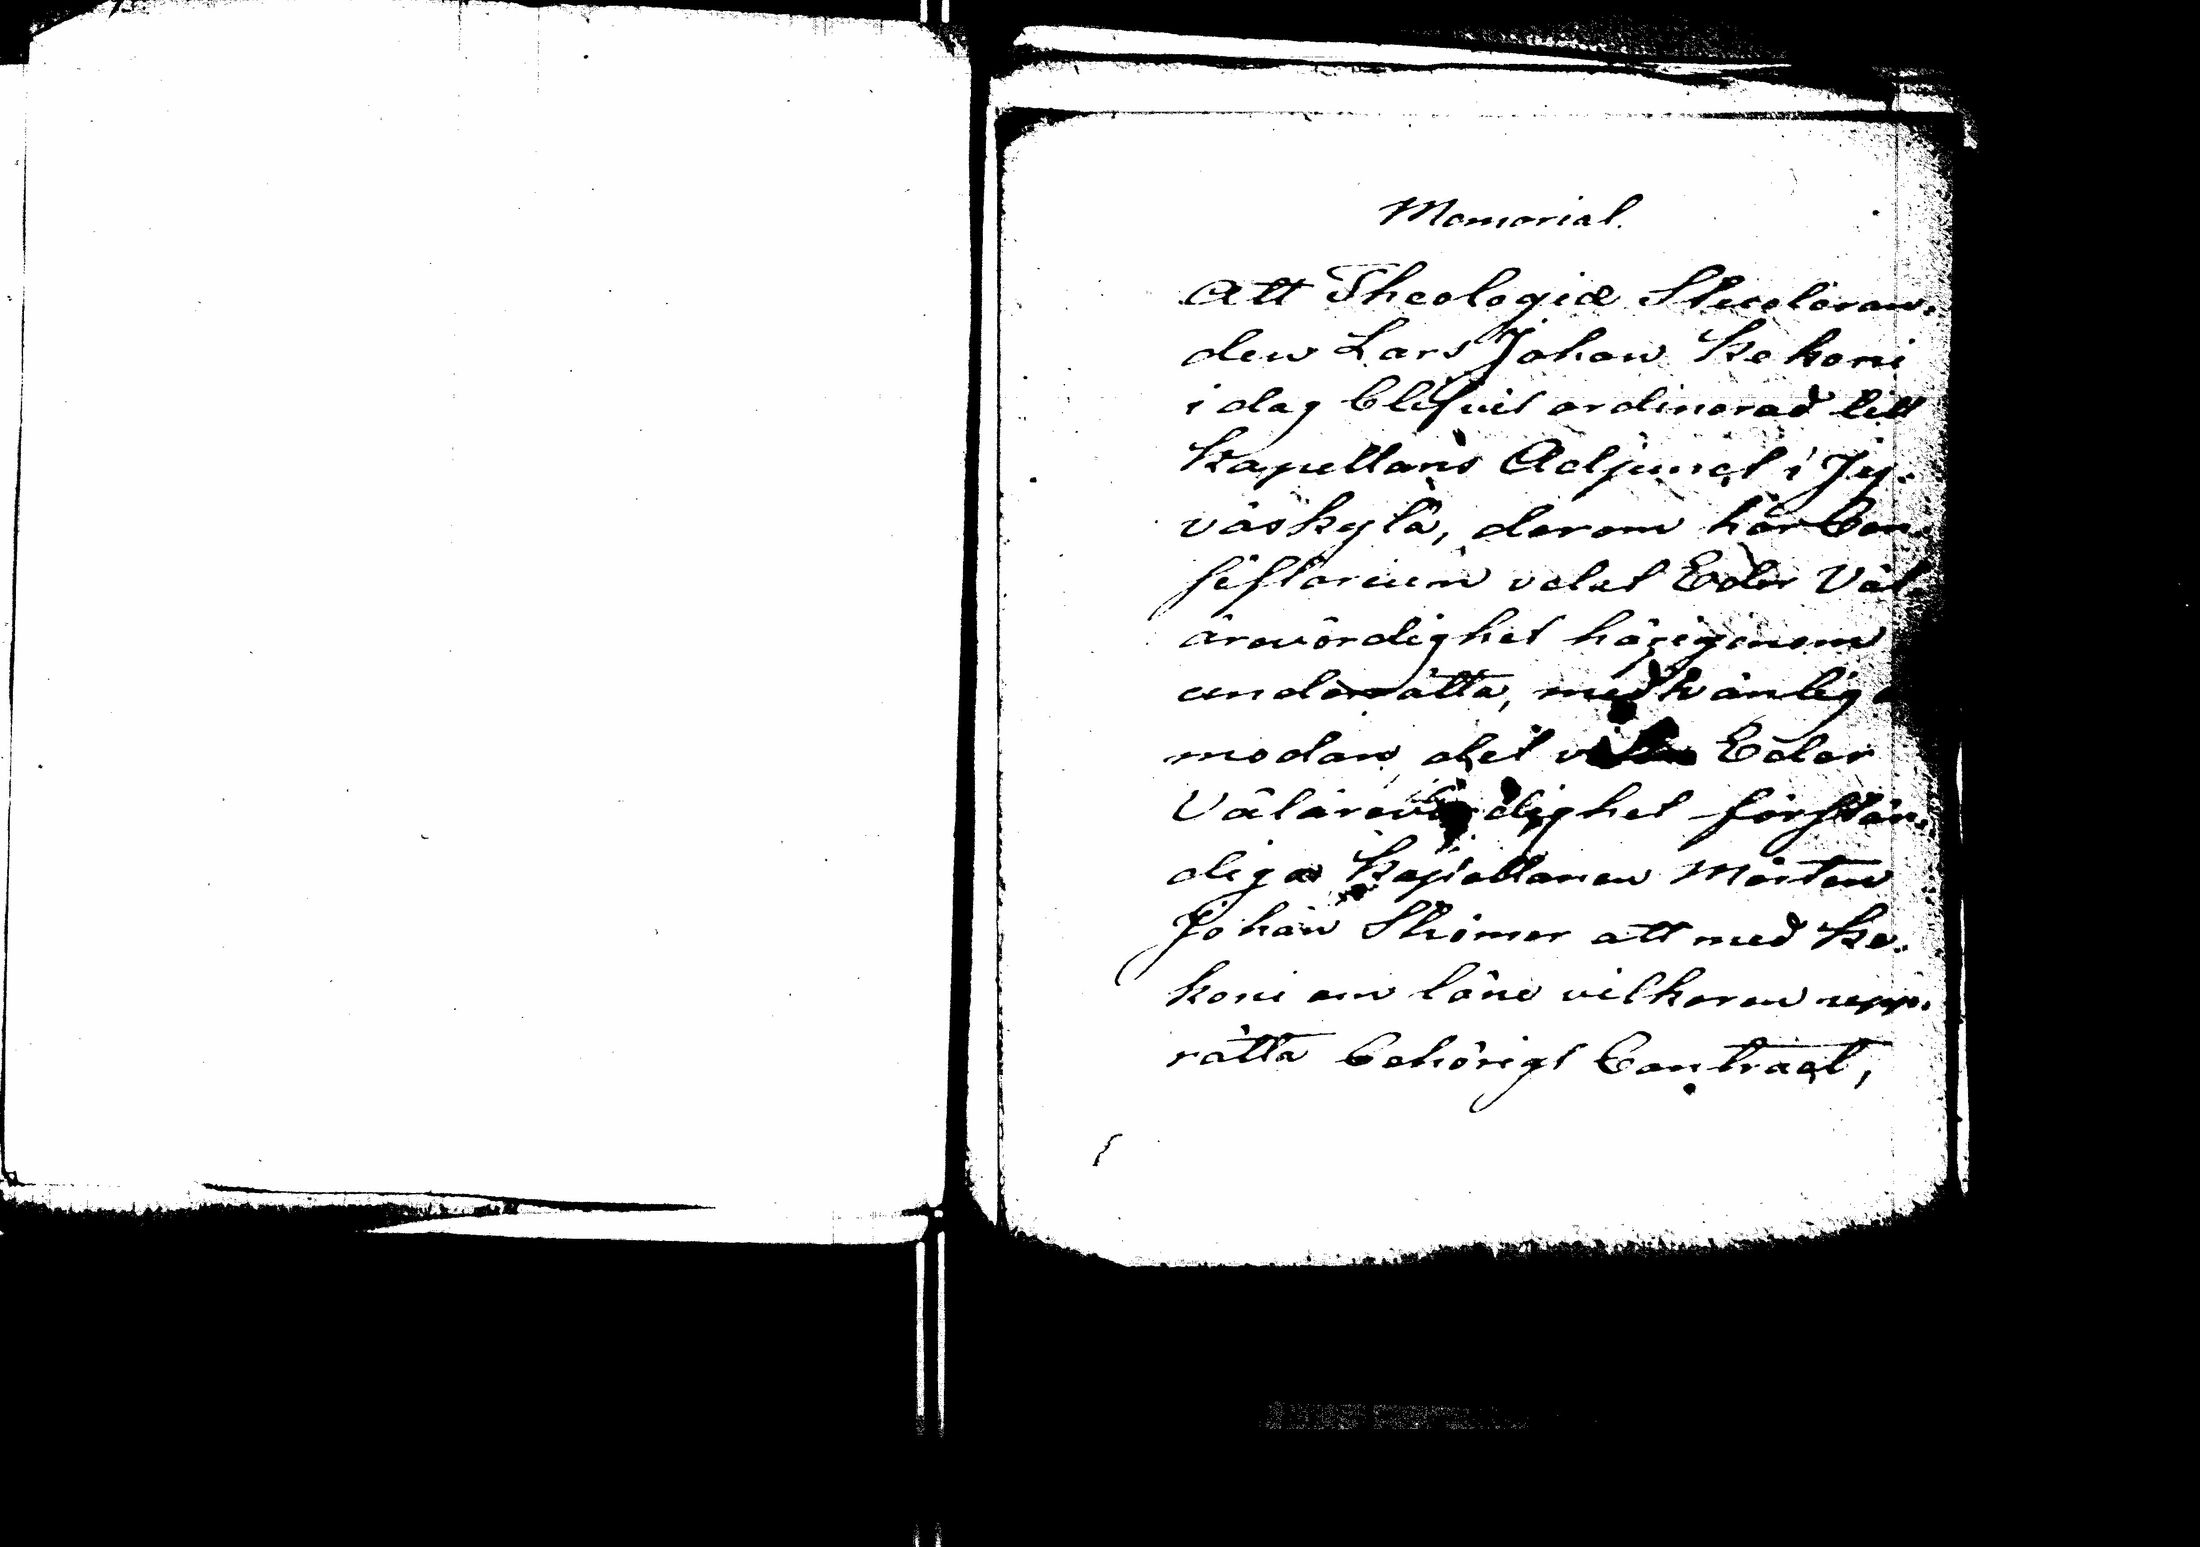 Memorial.
Att Theologiæ Studeran-
den Lars Johan Kekoni
i dag blifvit ordinerad till
Kapellans Adjunct i Jy-
väskylä, derom har Con-
sistorium velat Eder Väl-
ärevördighet härigenom
underrätta, med vänlig an-
modan det ville Eder
Välärevördighet förstän-
diga Kapellanen Mårten
Johan Skömer att med Ke-
koni om löne vilkoren upp-
rätta behörigt Contract,